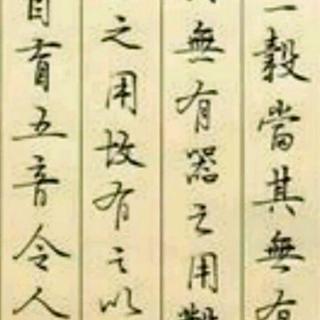 一轂當其無有
無有器之用鑿
之用故有之以
目盲五音令人